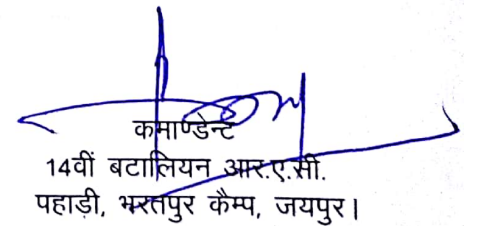 कमाण्डेन्ट
14वीं बटालियन आर.ए.सी.
पहाड़ी, भरतपुर कैम्प, जयपुर।